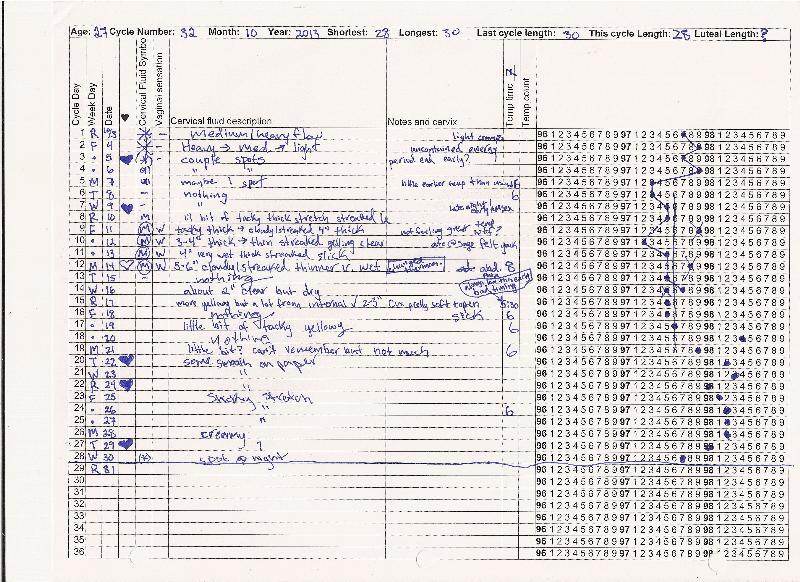 Age: 27 Cycle Number: 32 Month: 10 Year: 2013 Shortest: 28 Longest: 30 Last cycle length: 30 This cycle Length: 28 Luteal Length: ?
Cycle Day Week Day Date ♥ Cervical Fluid Symbol Vaginal sensation Cervical fluid description Notes and cervix Temp time Temp count
1 R 10/3 - medium/heavy flow light cramps 96 1 2 3 4 5 6 7 8 9 97 1 2 3 4 5 6 7 8 9 98 1 2 3 4 5 6 7 8 9
2 F 4 - Heavy → med → light uncontained energy 96 1 2 3 4 5 6 7 8 9 97 1 2 3 4 5 6 7 8 9 98 1 2 3 4 5 6 7 8 9
3 • 5 ♥ - couple spots period end early? 96 1 2 3 4 5 6 7 8 9 97 1 2 3 4 5 6 7 8 9 98 1 2 3 4 5 6 7 8 9
4 • 6 " " 96 1 2 3 4 5 6 7 8 9 97 1 2 3 4 5 6 7 8 9 98 1 2 3 4 5 6 7 8 9
5 M 7 - maybe 1 spot little earlier temp than usual 96 1 2 3 4 5 6 7 8 9 97 1 2 3 4 5 6 7 8 9 98 1 2 3 4 5 6 7 8 9
6 T 8 - nothing 6 96 1 2 3 4 5 6 7 8 9 97 1 2 3 4 5 6 7 8 9 98 1 2 3 4 5 6 7 8 9
7 W 9 ♥ - " late night 96 1 2 3 4 5 6 7 8 9 97 1 2 3 4 5 6 7 8 9 98 1 2 3 4 5 6 7 8 9
8 R 10 M lil bit of tacky thick stretch streaked 96 1 2 3 4 5 6 7 8 9 97 1 2 3 4 5 6 7 8 9 98 1 2 3 4 5 6 7 8 9
9 F 11 M W tacky thick → cloudy/streaked 4" thick not feeling great 96 1 2 3 4 5 6 7 8 9 97 1 2 3 4 5 6 7 8 9 98 1 2 3 4 5 6 7 8 9
10 • 12 M W 3-4" thick → thin streaked getting clear felt 96 1 2 3 4 5 6 7 8 9 97 1 2 3 4 5 6 7 8 9 98 1 2 3 4 5 6 7 8 9
11 • 13 M W 4" very wet thick streaked slick 96 1 2 3 4 5 6 7 8 9 97 1 2 3 4 5 6 7 8 9 98 1 2 3 4 5 6 7 8 9
12 M 14 ♡ M W 5-6" cloudy/streaked thinner v. wet 8 96 1 2 3 4 5 6 7 8 9 97 1 2 3 4 5 6 7 8 9 98 1 2 3 4 5 6 7 8 9
13 T 15 - nothing 96 1 2 3 4 5 6 7 8 9 97 1 2 3 4 5 6 7 8 9 98 1 2 3 4 5 6 7 8 9
14 W 16 about 2" clear but dry 96 1 2 3 4 5 6 7 8 9 97 1 2 3 4 5 6 7 8 9 98 1 2 3 4 5 6 7 8 9
15 R 17 more yellowy but a lot from internal √ 2-3" Cvx pretty soft + open 5:30 96 1 2 3 4 5 6 7 8 9 97 1 2 3 4 5 6 7 8 9 98 1 2 3 4 5 6 7 8 9
16 F 18 nothing sick 6 96 1 2 3 4 5 6 7 8 9 97 1 2 3 4 5 6 7 8 9 98 1 2 3 4 5 6 7 8 9
17 • 19 little bit of tacky yellowy 6 96 1 2 3 4 5 6 7 8 9 97 1 2 3 4 5 6 7 8 9 98 1 2 3 4 5 6 7 8 9
18 • 20 nothing 96 1 2 3 4 5 6 7 8 9 97 1 2 3 4 5 6 7 8 9 98 1 2 3 4 5 6 7 8 9
19 M 21 little bit? can't remember but not much 6 96 1 2 3 4 5 6 7 8 9 97 1 2 3 4 5 6 7 8 9 98 1 2 3 4 5 6 7 8 9
20 T 22 ♥ some smooth on paper 96 1 2 3 4 5 6 7 8 9 97 1 2 3 4 5 6 7 8 9 98 1 2 3 4 5 6 7 8 9
21 W 23 " 96 1 2 3 4 5 6 7 8 9 97 1 2 3 4 5 6 7 8 9 98 1 2 3 4 5 6 7 8 9
22 R 24 ♥ " 96 1 2 3 4 5 6 7 8 9 97 1 2 3 4 5 6 7 8 9 98 1 2 3 4 5 6 7 8 9
23 F 25 96 1 2 3 4 5 6 7 8 9 97 1 2 3 4 5 6 7 8 9 98 1 2 3 4 5 6 7 8 9
24 • 26 " 6 96 1 2 3 4 5 6 7 8 9 97 1 2 3 4 5 6 7 8 9 98 1 2 3 4 5 6 7 8 9
25 • 27 " 96 1 2 3 4 5 6 7 8 9 97 1 2 3 4 5 6 7 8 9 98 1 2 3 4 5 6 7 8 9
26 M 28 creamy 96 1 2 3 4 5 6 7 8 9 97 1 2 3 4 5 6 7 8 9 98 1 2 3 4 5 6 7 8 9
27 T 29 ♥ ? 96 1 2 3 4 5 6 7 8 9 97 1 2 3 4 5 6 7 8 9 98 1 2 3 4 5 6 7 8 9
28 W 30 spot @ night 96 1 2 3 4 5 6 7 8 9 97 1 2 3 4 5 6 7 8 9 98 1 2 3 4 5 6 7 8 9
29 R 31 96 1 2 3 4 5 6 7 8 9 97 1 2 3 4 5 6 7 8 9 98 1 2 3 4 5 6 7 8 9
30 96 1 2 3 4 5 6 7 8 9 97 1 2 3 4 5 6 7 8 9 98 1 2 3 4 5 6 7 8 9
31 96 1 2 3 4 5 6 7 8 9 97 1 2 3 4 5 6 7 8 9 98 1 2 3 4 5 6 7 8 9
32 96 1 2 3 4 5 6 7 8 9 97 1 2 3 4 5 6 7 8 9 98 1 2 3 4 5 6 7 8 9
33 96 1 2 3 4 5 6 7 8 9 97 1 2 3 4 5 6 7 8 9 98 1 2 3 4 5 6 7 8 9
34 96 1 2 3 4 5 6 7 8 9 97 1 2 3 4 5 6 7 8 9 98 1 2 3 4 5 6 7 8 9
35 96 1 2 3 4 5 6 7 8 9 97 1 2 3 4 5 6 7 8 9 98 1 2 3 4 5 6 7 8 9
36 96 1 2 3 4 5 6 7 8 9 97 1 2 3 4 5 6 7 8 9 98 1 2 3 4 5 6 7 8 9